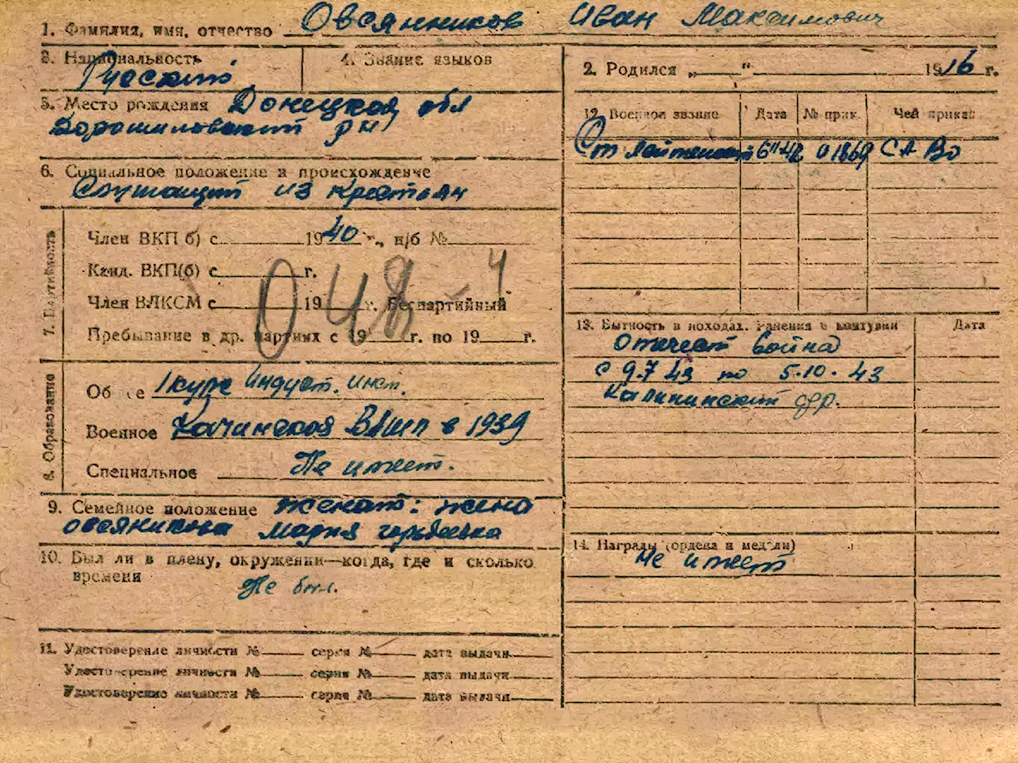 1. Фамилия, имя, отчество Овсянников Иван Максимович
3. Национальность Русский
4. Звание языков
2. Родился „ “ 1916 г.
5. Место рождения Донецкая обл
Ворошиловский рн
6. Социальное положение и происхождение
Служащий из крестьян
7. Партийность
Член ВКП б) с 1940 г., п/б №
Канд. ВКП(б) с г.
Член ВЛКСМ с 19 г. Беспартийный
Пребывание в др. партиях с 19 г. по 19 г.
048 - 4
8. Образование
Общее 1 курс индуст. инст.
Военное Качинская ВАШП в 1939
Специальное Не имеет.
9. Семейное положение женат: жена
Овсяникова Мария
10. Был ли в плену, окружении—когда, где и сколько
времени
Не был.
11. Удостоверение личности № серия № дата выдачи
Удостоверение личности № серия № дата выдачи
Удостоверение личности № серия № дата выдачи
12. Военное звание Дата № прик. Чей приказ
Ст лейтенант 6 II 42 01869 САВО
13. Бытность в походах. Ранения и контузии Дата
Отечест война
с 9.7 43 по 5.10.43
Калининский фр.
14. Награды (ордена и медали)
Не имеет